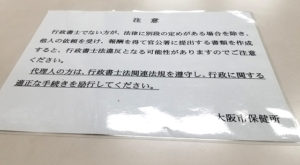 注 意
行政書士でない方が、法律に別段の定めがある場合を除き、
他人の依頼を受け、報酬を得て官公署に提出する書類を作成
すると、行政書士法違反となる可能性がありますのでご注意
ください。
代理人の方は、行政書士法関連法規を遵守し、行政に関する
適正な手続きを励行してください。
大阪市保健所